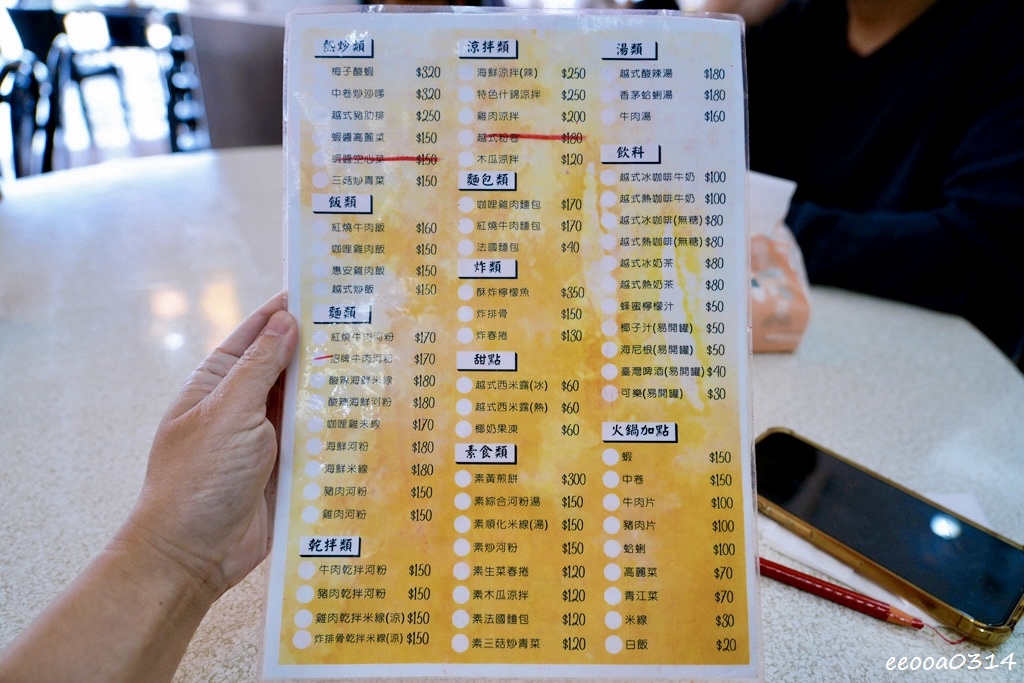 熱炒類
梅子酸蝦 $320
中卷炒沙嗲 $320
越式豬肋排 $250
蝦醬高麗菜 $150
蝦醬空心菜 $150
三菇炒青菜 $150
飯類
紅燒牛肉飯 $160
咖哩雞肉飯 $150
惠安雞肉飯 $150
越式炒飯 $150
麵類
紅燒牛肉河粉 $170
招牌牛肉河粉 $170
酸辣海鮮米線 $180
酸辣海鮮河粉 $180
咖哩雞米線 $170
海鮮河粉 $180
海鮮米線 $180
豬肉河粉 $150
雞肉河粉 $150
乾拌類
牛肉乾拌河粉 $150
豬肉乾拌河粉 $150
雞肉乾拌米線(涼) $150
炸排骨乾拌米線(涼) $150
涼拌類
海鮮涼拌(辣) $250
特色什錦涼拌 $250
雞肉涼拌 $200
越式粉卷 $180
木瓜涼拌 $120
麵包類
咖哩雞肉麵包 $170
紅燒牛肉麵包 $170
法國麵包 $40
炸類
酥炸檸檬魚 $350
炸排骨 $150
炸春捲 $130
甜點
越式西米露(冰) $60
越式西米露(熱) $60
椰奶果凍 $60
素食類
素黃煎餅 $300
素綜合河粉湯 $150
素順化米線(湯) $150
素炒河粉 $150
素生菜春捲 $120
素木瓜涼拌 $120
素法國麵包 $120
素三菇炒青菜 $120
湯類
越式酸辣湯 $180
香茅蛤蜊湯 $180
牛肉湯 $160
飲料
越式冰咖啡牛奶 $100
越式熱咖啡牛奶 $100
越式冰咖啡(無糖) $80
越式熱咖啡(無糖) $80
越式冰奶茶 $80
越式熱奶茶 $80
蜂蜜檸檬汁 $50
椰子汁(易開罐) $50
海尼根(易開罐) $50
臺灣啤酒(易開罐) $40
可樂(易開罐) $30
火鍋加點
蝦 $150
中卷 $150
牛肉片 $100
豬肉片 $100
蛤蜊 $100
高麗菜 $70
青江菜 $70
米線 $30
白飯 $20
eeooa0314